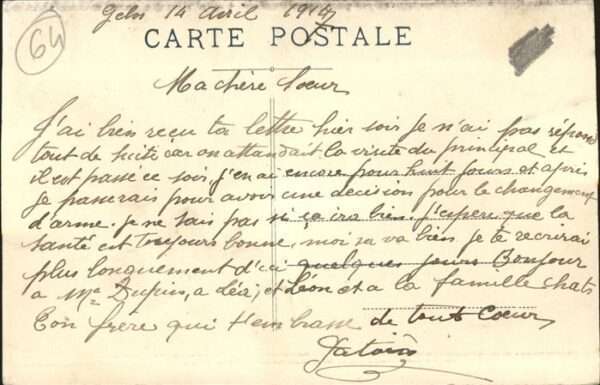 64
Gelos 14 Avril 1917
CARTE POSTALE
Ma chère Soeur
J'ai bien reçu ta lettre hier soir je n'ai pas répond
tout de suite car on attandait la visite du principal et
il est passé ce soir, j'en ai encore pour huit jours et après
je passerais pour avoir une décision pour le changement
d'arme. je ne sais pas si ça ira bien. j'espère que la
santé est toujours bonne, moi sa va bien, je te recrirai
plus longuement d'ici quelques jours Bonjour
a Me Dupin, a et Léon et a la famille
Ton frère qui t'embrasse de tout Coeur